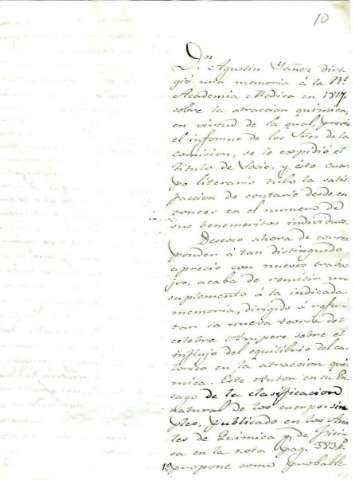 10
Dn.
D. Agustin Yañez diri-
gió una memoria á la Rl.
Academia Medica en 1817
sobre la atraccion quimica,
en virtud de la qual, previo
el informe de los Sres de la
comision, se le expidió el
titulo de Socio, y este cuer-
po literario tubo la satis-
faccion de contarlo desde en-
tonces en el numero de
sus benemeritos individuos.
Deseoso ahora de corres-
ponder á tan distinguido
aprecio con nuevos traba-
jos, acaba de remitir un
suplemento á la indicada
memoria, dirigido á refu-
tar la nueva teoria del
celebre Ampere sobre el
influjo del equilibrio del ca-
lorico en la atraccion qui-
mica. Este Autor en su En-
sayo de la clasificacion
natural de los cuerpos sim-
ples, publicado en los Ana-
les de Quimica y de Fisi-
ca en la nota (pag.
propone como probable